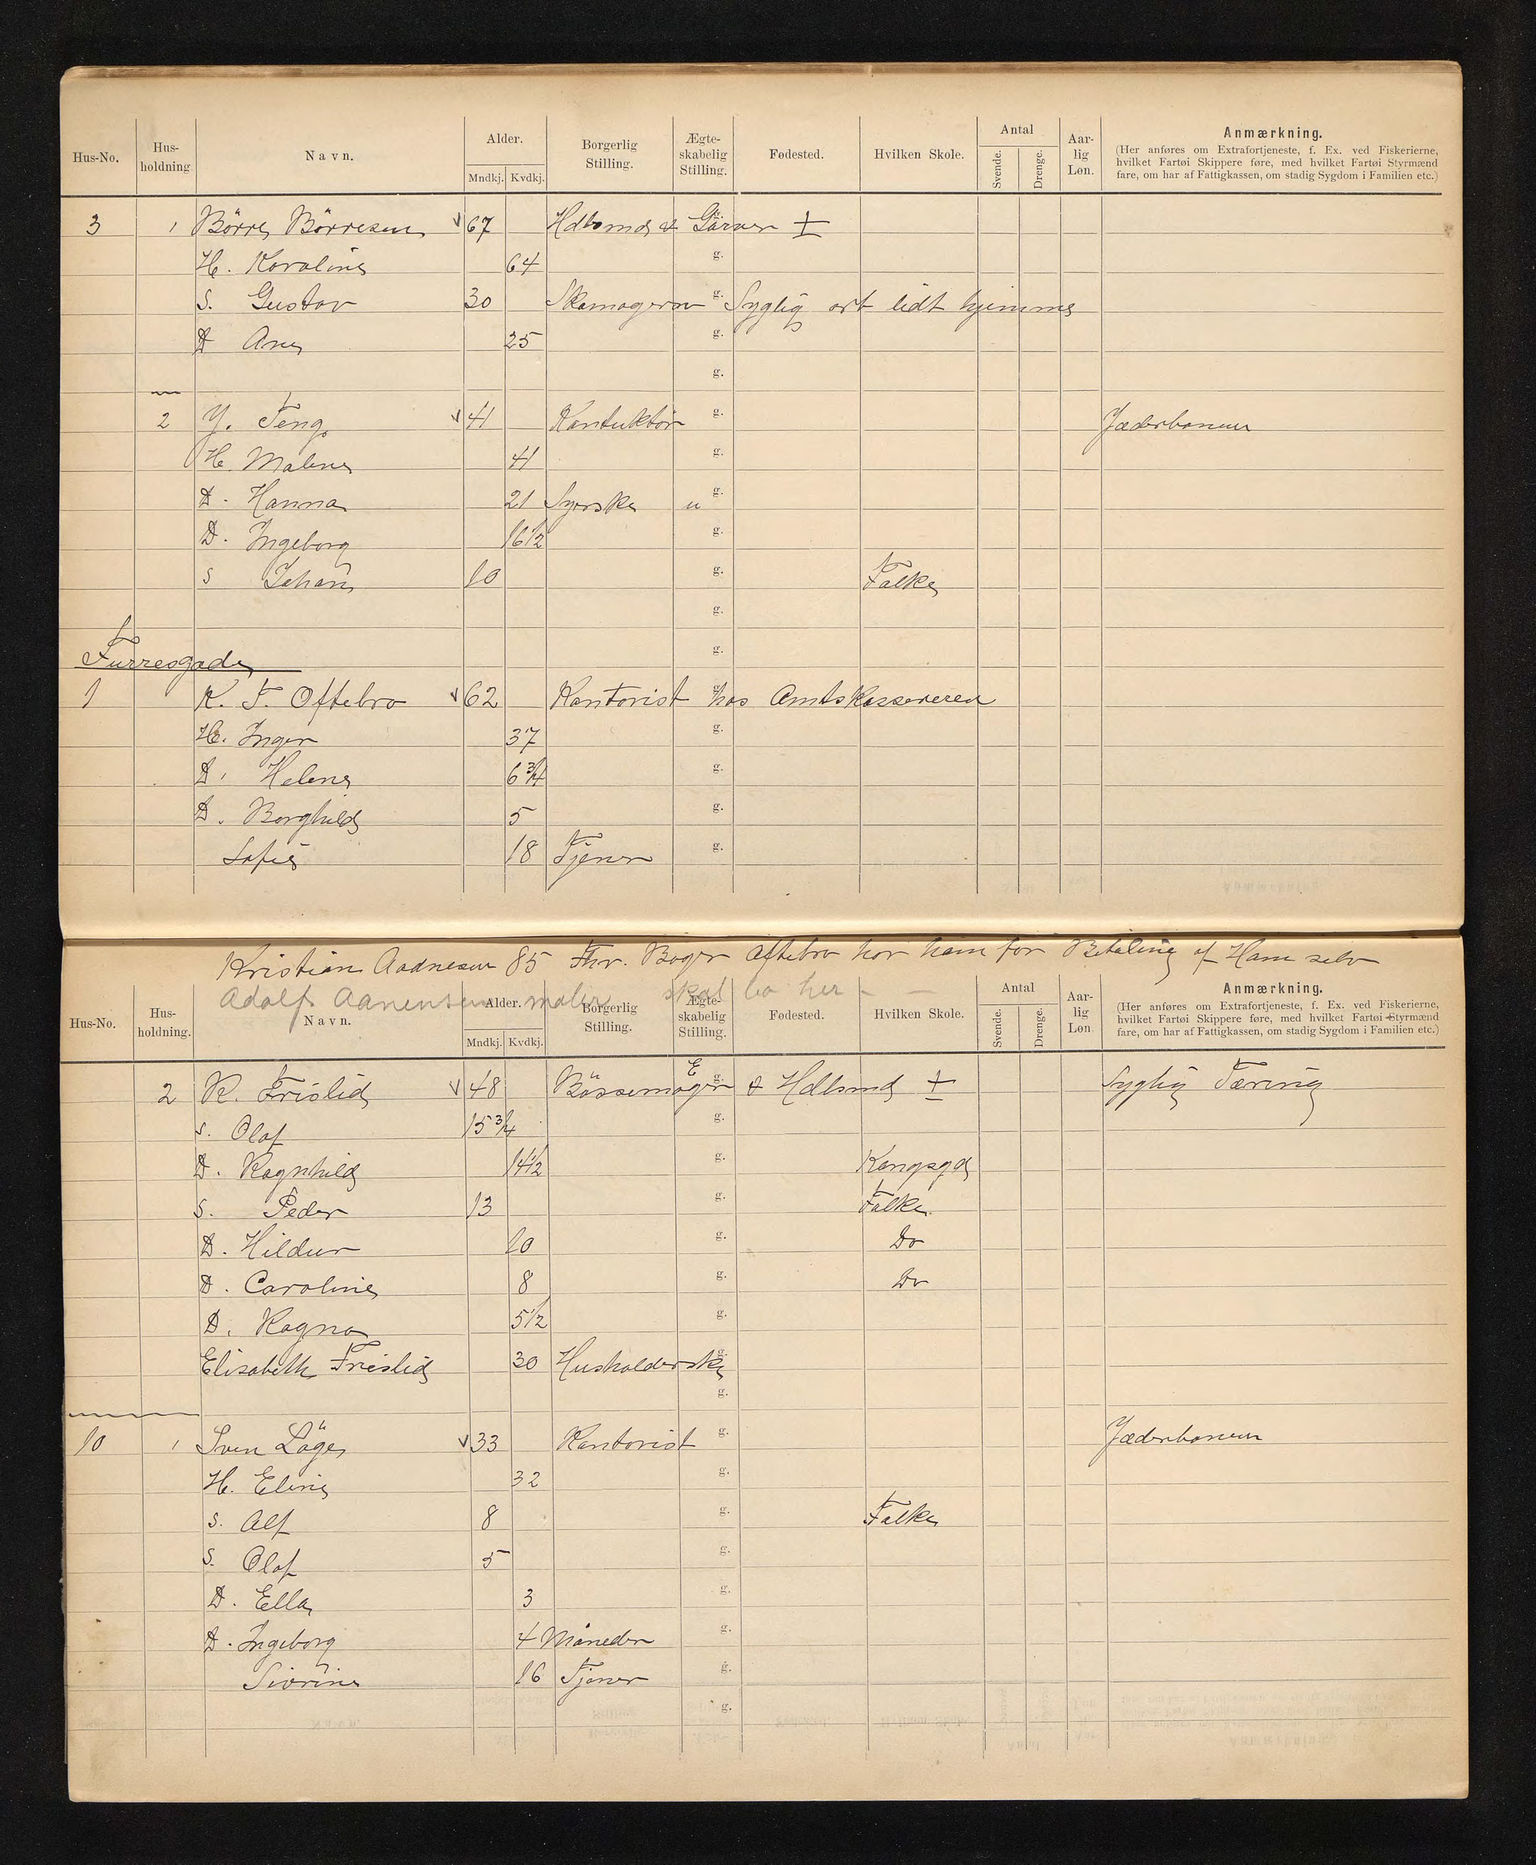 Hus-No. Hus-holdning. Navn. Alder. Mndkj. Kvdkj. Borgerlig Stilling. Ægte-skabelig Stilling. Fødested. Hvilken Skole. Antal Svende. Drenge. Aar-lig Løn. Anmærkning. (Her anføres om Extrafortjeneste, f. Ex. ved Fiskerierne, hvilket Fartøi Skippere føre, med hvilket Fartøi Styrmænd fare, om har af Fattigkassen, om stadig Sygdom i Familien etc.)
3 1 Börre Börresen 67 Hdlsmd & g. Gärver ±
H. Karoline 64 g.
S. Gustav 30 Skomager g. Syglig art lidt hjemme
D Ane 25 g.
g.
2 Y. Teng 41 Konduktör g. Jæderbanen
H. Malene 41 g.
D. Hanna 21 Syerske u g.
D. Ingeborg 16 1/2 g.
S Johan 10 g. Folke
g.
Furresgade g.
1 K. T. Oftebro 62 Kontorist g. hos Amtskassereren
H. Inger 37 g.
D. Helene 6 3/4 g.
D. Borghild 5 g.
Sofie 18 Tjener g.
Kristian Aadnesen 85 Fhv. Bager Oftebro har ham for Betaling af Ham selv
Adolf Aanensen maler skal bo her - -
Hus-No. Hus-holdning. Navn. Alder. Mndkj. Kvdkj. Borgerlig Stilling. Ægte-skabelig Stilling. Fødested. Hvilken Skole. Antal Svende. Drenge. Aar-lig Løn. Anmærkning. (Her anføres om Extrafortjeneste, f. Ex. ved Fiskerierne, hvilket Fartøi Skippere føre, med hvilket Fartøi Styrmænd fare, om har af Fattigkassen, om stadig Sygdom i Familien etc.)
2 R. Frislid 48 Bössemager E g. & Hdlsmd ± Syglig Tæring
S. Olaf 15 3/4 g.
D. Ragnhild 14 1/2 g. Kongsgd
S. Peder 13 g. Folke
D. Hildur 10 g. Do
D. Caroline 8 g. Do
D. Ragna 5 1/2 g.
Elisabeth Frislid 30 Husholderske g.
g.
10 1 Sven Löge 33 Kontorist g. Jæderbanen
H. Eline 32 g.
S. Alf 8 g. Folke
S. Olaf 5 g.
D. Ella 3 g.
D. Ingeborg 4 Måneder g.
Sivrine 16 Tjener g.
g.